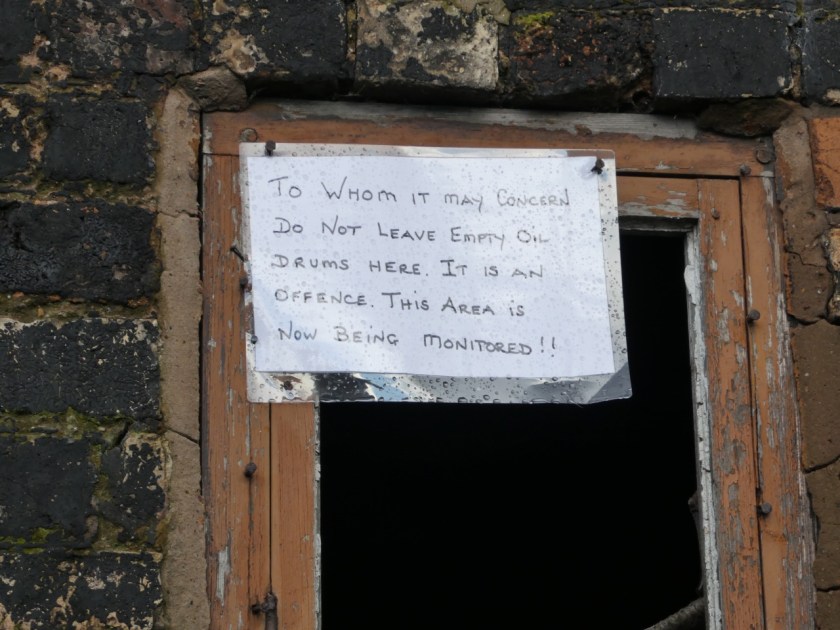 To Whom it may Concern
Do Not Leave Empty Oil
Drums Here. It is an
Offence. This Area is
Now Being Monitored!!